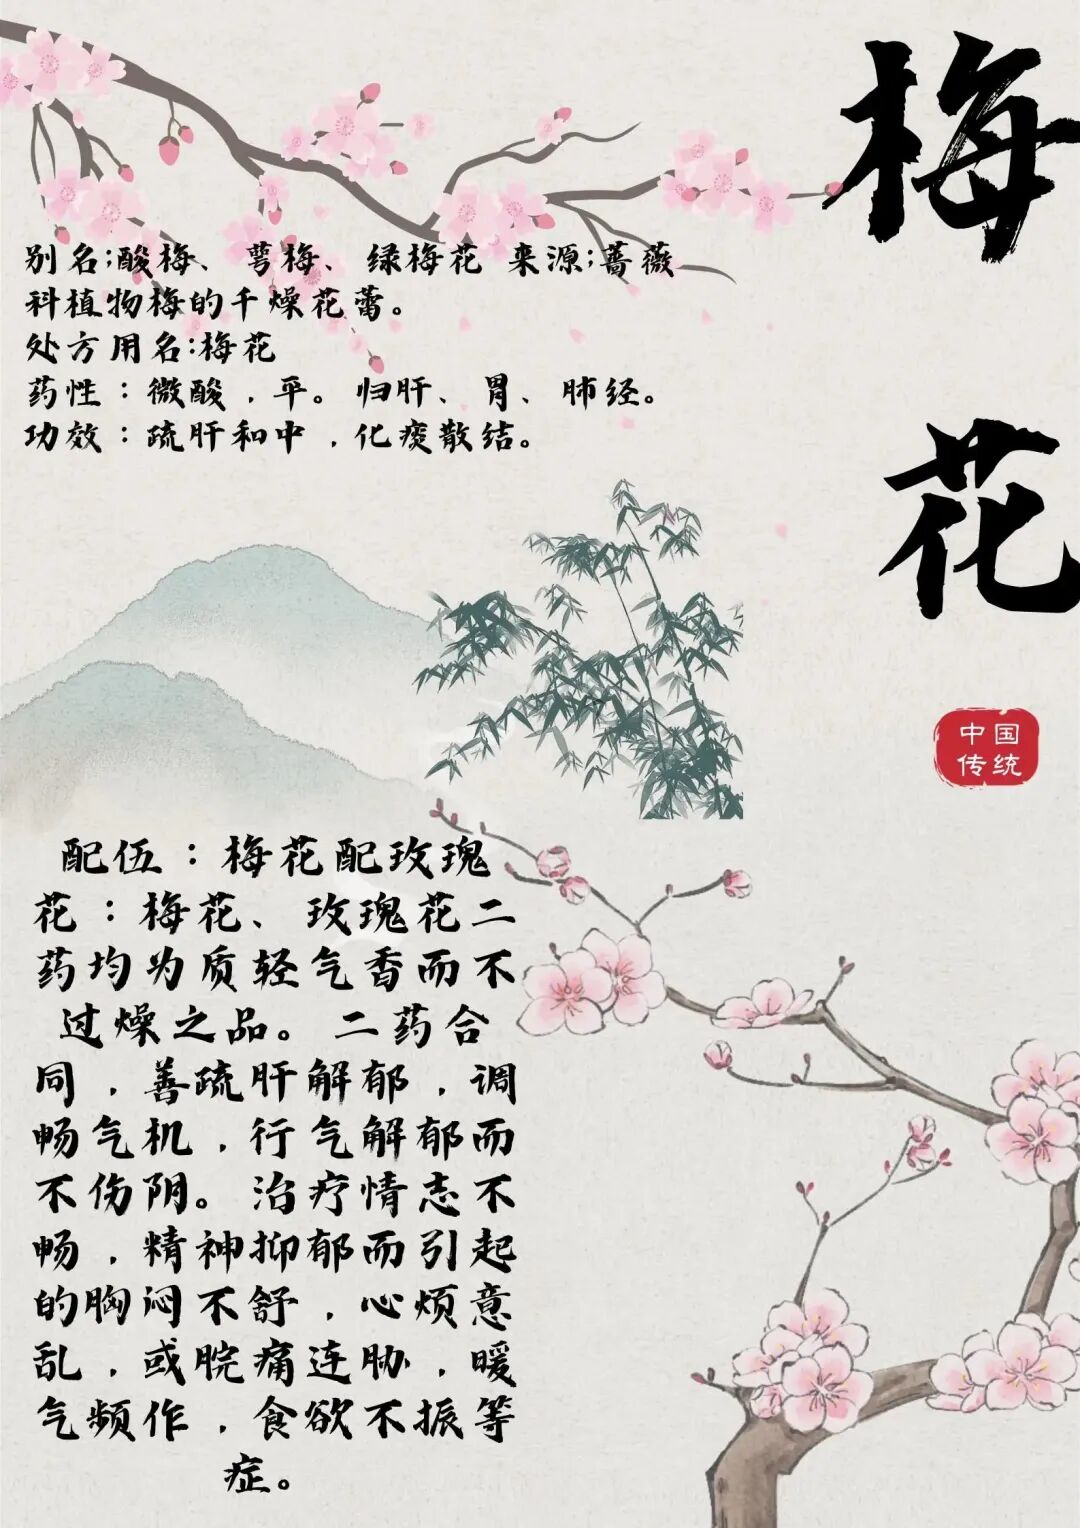 梅花
别名;酸梅、萼梅、绿梅花 来源;蔷薇
科植物梅的干燥花蕾。
处方用名:梅花
药性：微酸，平。归肝、胃、肺经。
功效：疏肝和中，化痰散结。
中国
传统
配伍：梅花配玫瑰
花：梅花、玫瑰花二
药均为质轻气香而不
过燥之品。二药合
同，善疏肝解郁，调
畅气机，行气解郁而
不伤阴。治疗情志不
畅，精神抑郁而引起
的胸闷不舒，心烦意
乱，或脘痛连胁，暖
气频作，食欲不振等
症。